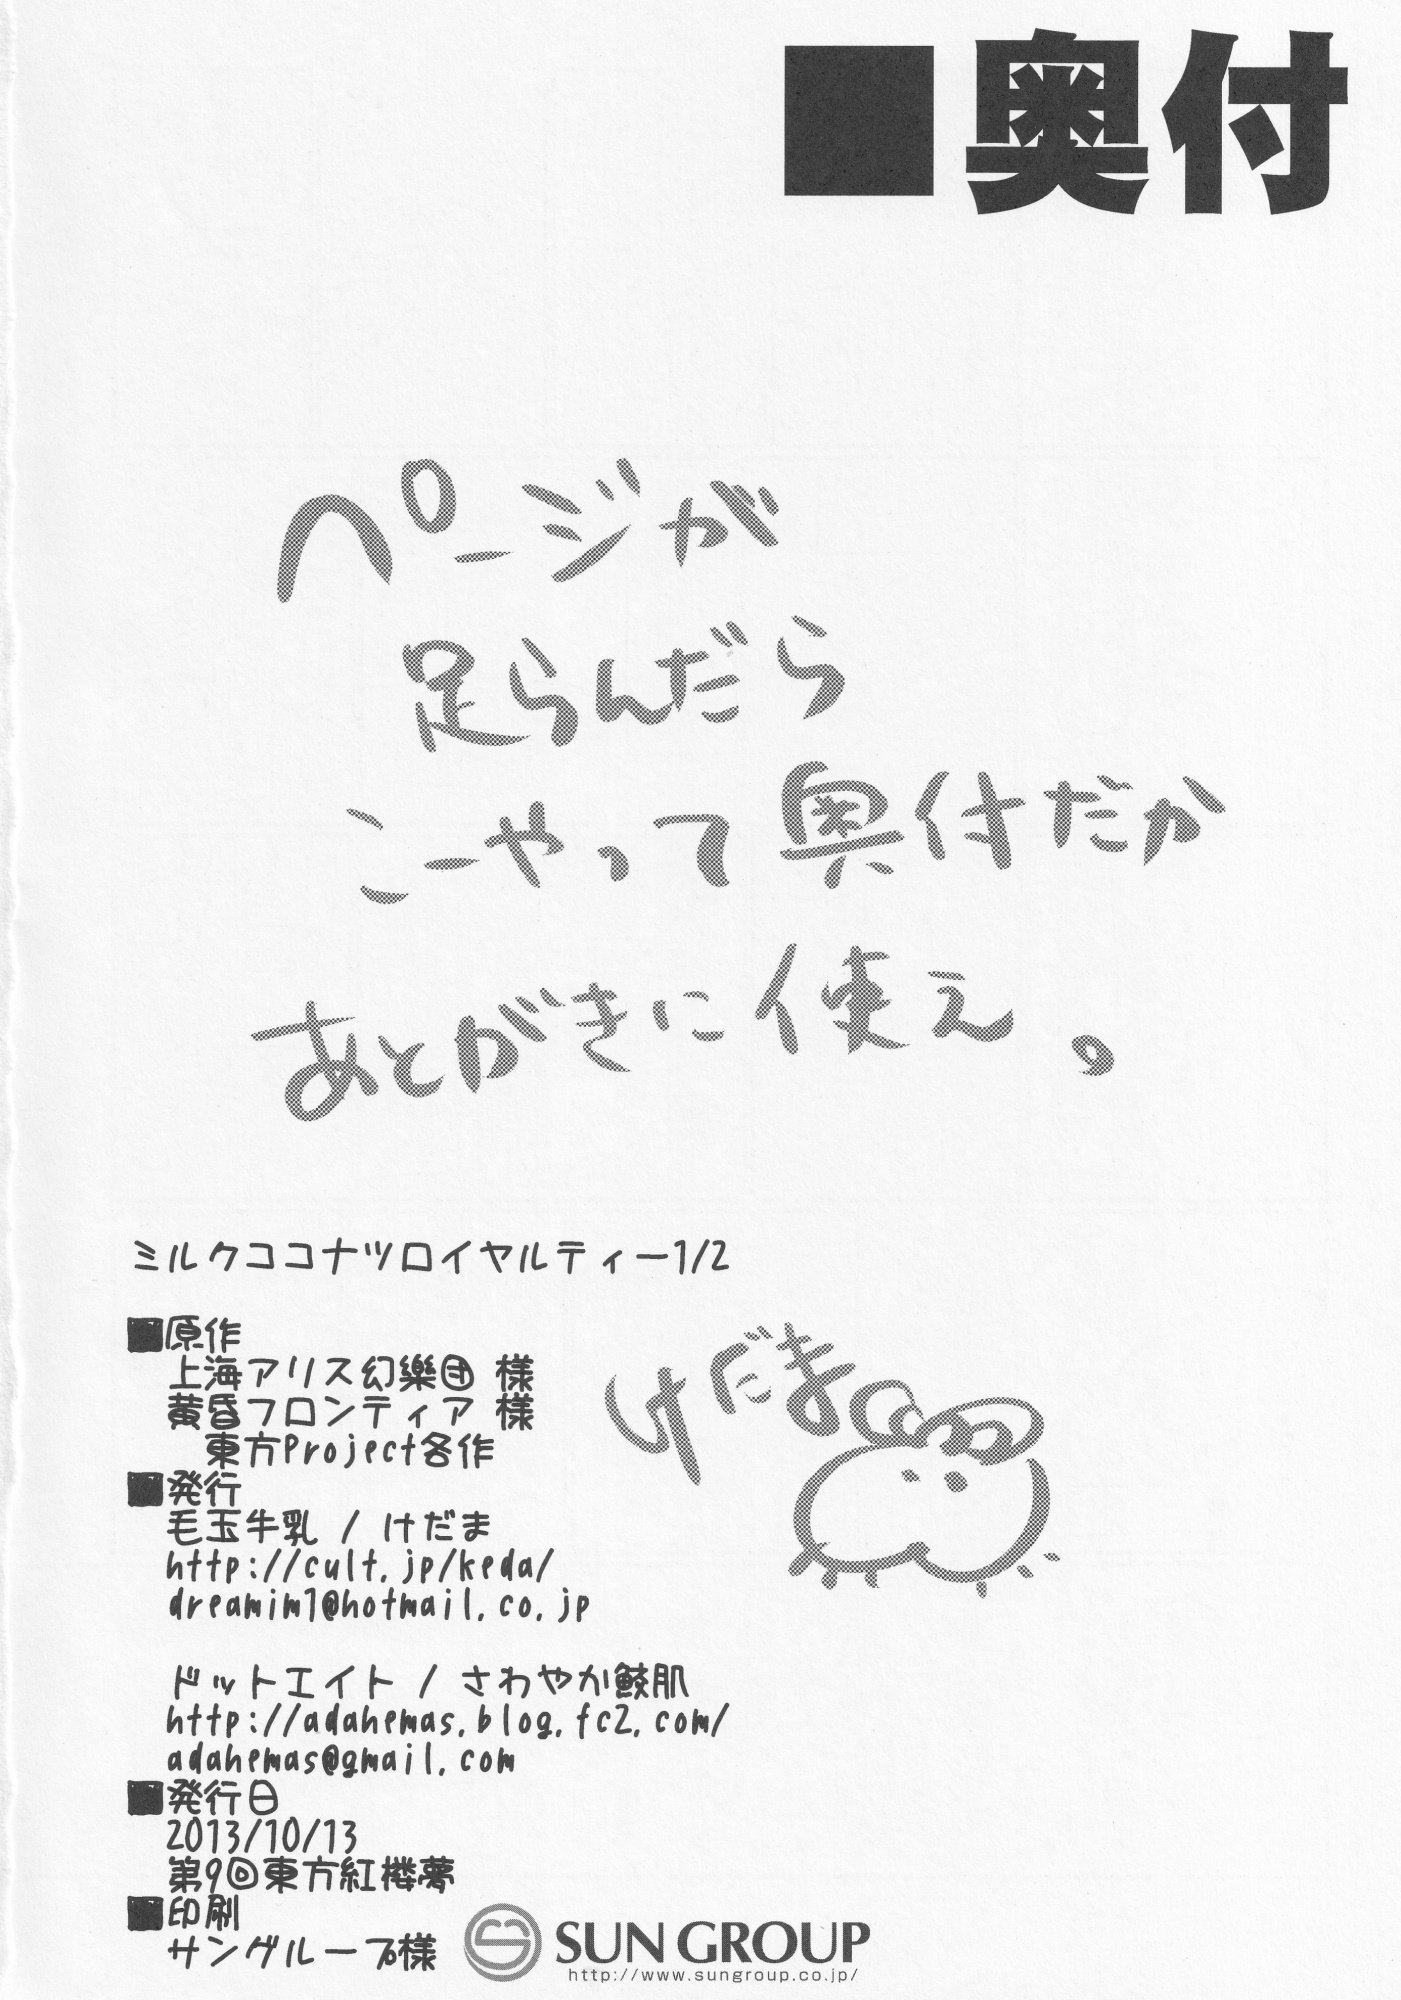 ■奥付
ページが
足らんだら
こーやって奥付だか
あとがきに使え。
ミルクココナツロイヤルティー1/2
■原作
上海アリス幻樂団 様
黄昏フロンティア 様
東方Project各作
けだま
■発行
毛玉牛乳 / けだま
http://cult.jp/keda/
dreamim1@hotmail.co.jp
ドットエイト / さわやか鮫肌
http://adahemas.blog.fc2.com/
adahemas@gmail.com
■発行日
2013/10/13
第9回東方紅楼夢
■印刷
サングループ様
SUN GROUP
http://www.sungroup.co.jp/